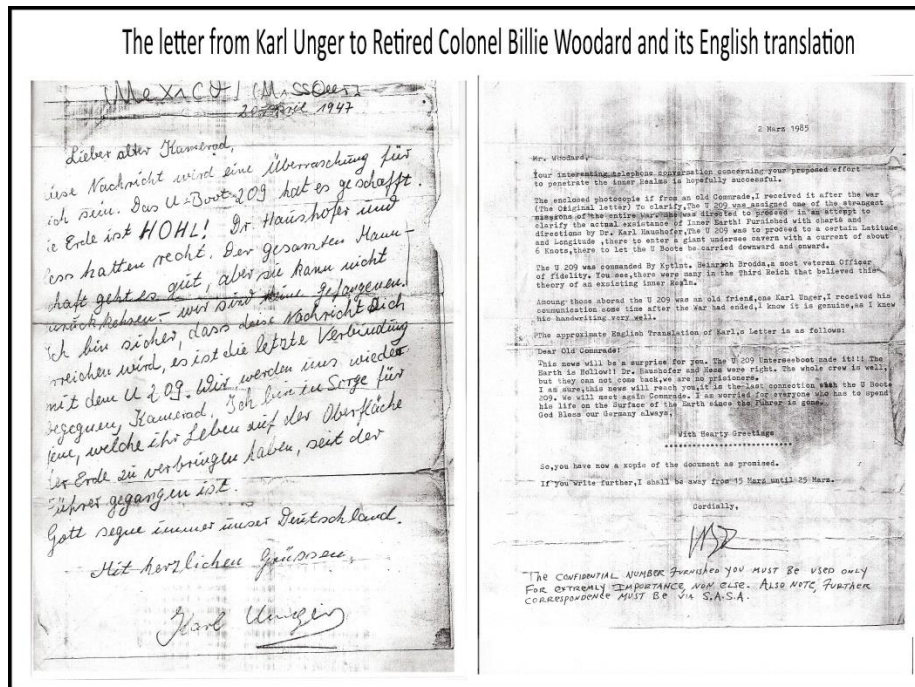 The letter from Karl Unger to Retired Colonel Billie Woodard and its English translation
(Mexico) (Missouri)
April 1947
Lieber alter Kamerad,
iese Nachricht wird eine Überraschung für
ich sein. Das U-Boot 209 hat es geschafft.
ie Erde ist HOHL! Dr. Haushofer und
ess hatten recht. Der gesamten Mann-
chaft geht es gut, aber sie kann nicht
zurückkehren - wir sind keine gefangenen.
Ich bin sicher, dass diese Nachricht Dich
rreichen wird, es ist die letzte Verbindung
mit dem U 209. Wir werden uns wieder
begegnen, Kamerad. Ich bin in Sorge für
jene, welche ihr Leben auf der Oberfläche
der Erde zu verbringen haben, seit der
Führer gegangen ist.
Gott segne immer unser Deutschland.
Mit herzlichen Grüssen,
Karl Unger
2 Marz 1985
Mr. Woodard,
Your interesting telephone conversation concerning your proposed effort
to penetrate the inner Realms is hopefully successful.
The enclosed photocopie if from an old Comrade,I received it after the war
(The Original letter) To clarify,The U 209 was assigned one of the strangest
missions of the entire war. She was directed to proceed in an attempt to
clarify the actual existance of Inner Earth! Furnished with charts and
directions by Dr. Karl Haushofer,The U 209 was to proceed to a certain Latitude
and Longitude ,there to enter a giant undersea cavern with a current of about
6 Knots,there to let the U Boote be carried downward and onward.
The U 209 was commanded By Kptlnt. Heinrich Brodda,a most veteran Officer
of fidelity. You see,there were many in the Third Reich that believed this
theory of an exsisting inner Realm.
Amoung those abored the U 209 was an old friend,one Karl Unger,I received his
communication some time after the War had ended,I know it is genuine,as I knew
his handwriting very well.
The approximate English Translation of Karl,s Letter is as follows:
Dear Old Commrade:
This news will be a surprise for you. The U 209 Unterseeboot made it!!! The
Earth is Hollow!! Dr. Haushofer and Hess were right. The whole crew is well,
but they can not come back,we are no prisioners.
I am sure,this news will reach you,it is the last connection with the U Boote
209. We will meet again Commrade. I am worried for everyone who has to spend
his life on the Surface of the Earth since the Fuhrer is gone.
God Bless our Germany always,
With Hearty Greetings
So,you have now a xopie of the document as promised.
If you write further,I shall be away from 15 Marz until 25 Marz.
Cordially,
THE CONFIDENTIAL NUMBER FURNISHED YOU MUST BE USED ONLY
FOR EXTREMLY IMPORTANCE, NON ELSE. ALSO NOTE, FURTHER
CORRESPONDENCE MUST BE VIA S.A.S.A.